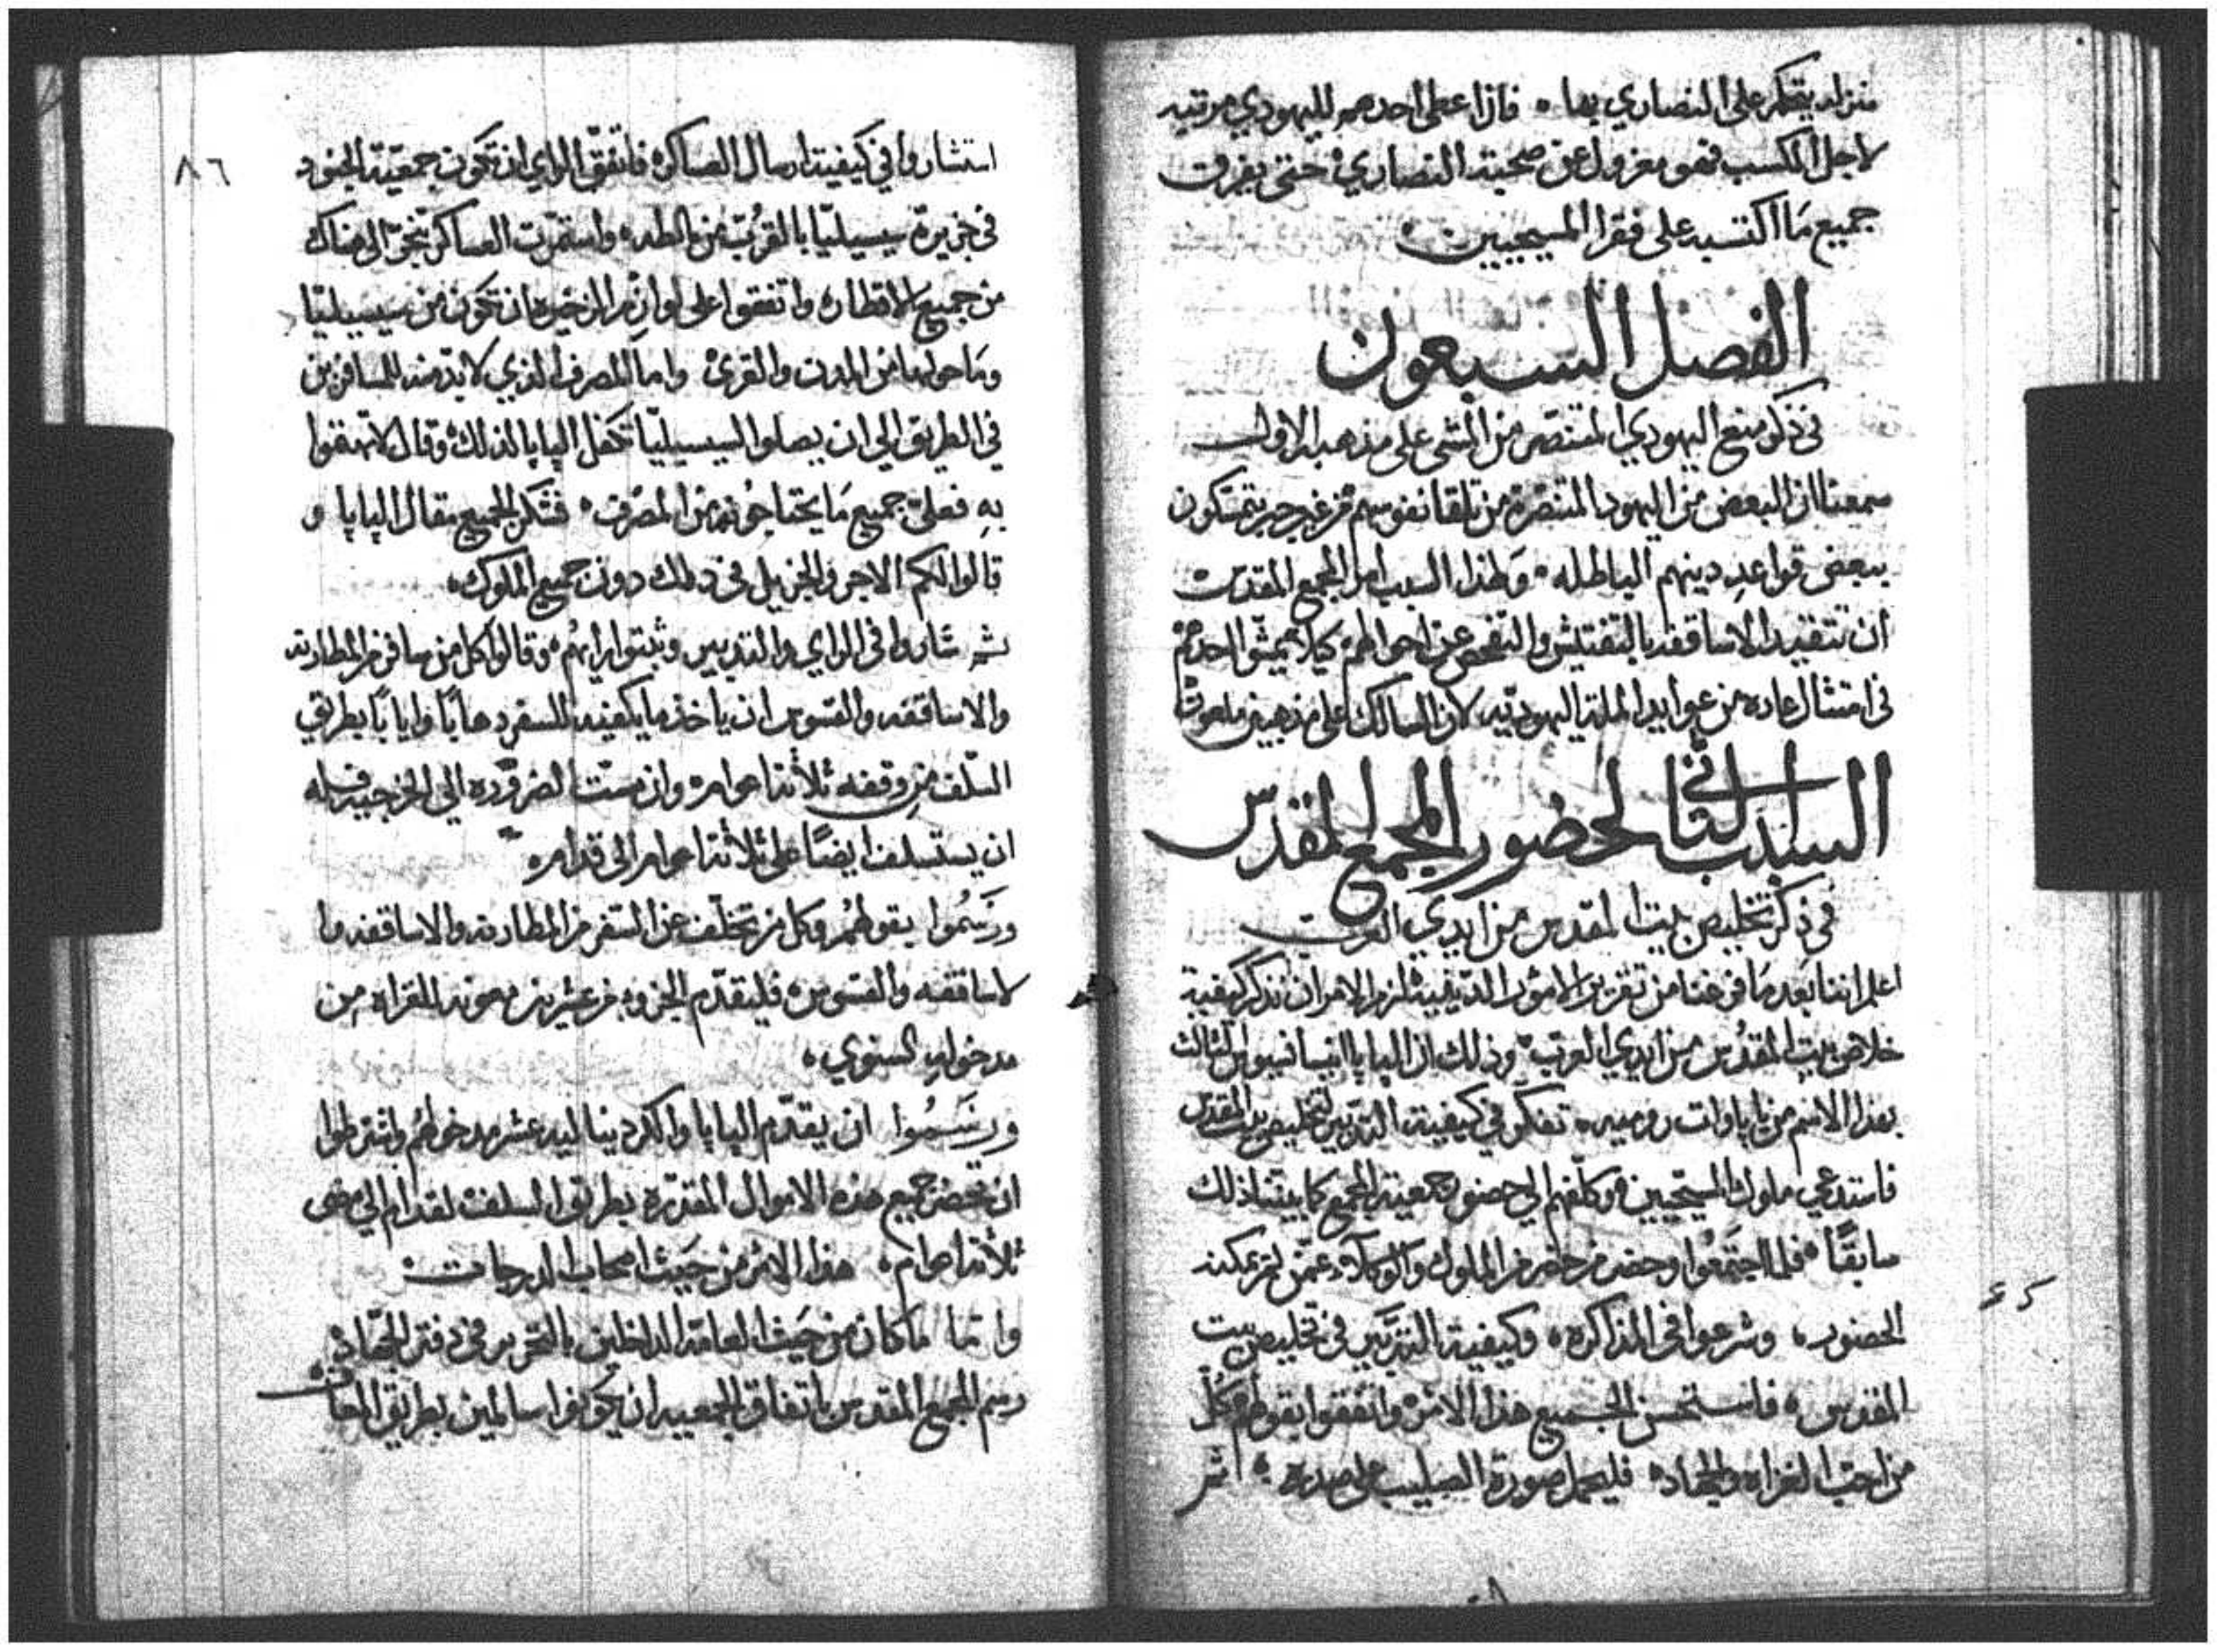 منزله يتحكم على النصاري بها ٠ فاذا اعطى احدهم لليهودي مرتبه
لاجل المكسب فهو معزول عن صحبة النصاري ٠ حتى يفرق
جميع مَا اكتسبه على فقرا المسيحيين ٠
الفصل السبعون
في ذكر منع اليهودي المتنصّر من المشي على مذهبه الاول
سمعنا ان البعض من اليهود المتنصّرة من تلقا نفوسهم من غير جبر يتمسكون
ببعض قواعدِ دينهم الباطله ٠ وَلهذا السبب امر المجمع المقدس
ان تتقيد الاساقفه بالتفتيش والتفحص عن احوالهم كيلا يمشّوا احدهم
في امتثال عاده من عوايد الملة اليهوديّه لان السالك على مذهبين ملعون
السبب الثاني لحضور المجمع المقدس
في ذكر تخليص بيت المقدس من ايدي العرب
اعلم اننا بَعد مَا فرغنا من تقرير الامور الدينيّة لزم الامر ان نذكر كيفية
خلاص بيت المقدس من ايدي العرب ٠ وذلك ان البابا اينسانسيوس الثالث
بهذا الاسم من باباوات روميه ٠ تفكّر في كيفية التدبير لتخليص بيت المقدس
فاستدعي ملوك المسيحيين وكلّفهم الي حضور جمعية المجمع كما بينّا ذلك
سابقًا ٠ فلما اجتمعُوا وحضر من حضر من الملوك والوكلاء عمّن لم يمكنه
الحضور ٠ وشرعوا في المذاكره ٠ وكيفية التدبير في تخليص بيت
المقدس ٠ فاستحسن الجميع هذا الامر ٠ واتفقوا بقولهم كل
من احبّ الغزاه والجهاد ٠ فليحمل صورة الصليب على صدره ٠ ثم
٤٥
٨٦
استشاروا في كيفية ارسال العساكر ٠ فاتفق الراي ان تكون جمعيّة الجنود
في جزيرة سيسيليّا بالقُرب من مالطه ٠ واستمرت العساكر تنجرّ الى هناك
من جميع الاقطار ٠ واتفقوا على لوازم الذخيره ان تكون من سيسيليّا
ومَا حولها من المدن والقرى ٠ واما المصرف الذي لا بدّ منه للمسافرين
في الطريق الي ان يصلوا لسيسيليّا تكفل البابا لذلك ٠ وقال لا تهتمّوا
بهِ فعليّ جميع مَا يحتاجُونه من المصرف ٠ فشكر الجميع مقال البابا و
قالوا لكم الاجر والجزيل في ذلك دون جميع الملوك ٠
ثم شاروا في الراي والتدبير وثبتوا رايهُم ٠ وقالوا كل من سافر من المطارنه
والاساقفه والقسوس ان ياخذ ما يكفيه للسفر ذهابًا وايابًا بطريق
السّلف من وقفه ثلاثة اعوام ٠ وان مسّت الضروره الي الخرجيه فله
ان يستسلف ايضًا على ثلاثة اعوام الى قدام ٠
ورَسمُوا بقولهُم وكل من تخلّف عن السفر من المطارنه والاساقفه وا
لاساقفه والقسوس ٠ فليقدّم الجزو من عشرين معونه للغزاه من
مدخوله السنوي ٠
ورسَمُوا ان يقدّم البابا والكردينا ليه عشر مدخولهُم واشترطوا
ان تحضر جميع هذه الاموال المقدّره بطريق السلف لقدام الي مضى
ثلاثة اعوام ٠ هذا الامر من حَيث اصحاب الدرجات ٠
وامّا ما كان من حَيث العامّة الداخلين بالتحرير في دفتر الجهاد ٠
رسم المجمع المقدس باتفاق الجمعيه ان يكونوا سالمين بطريق المعاف